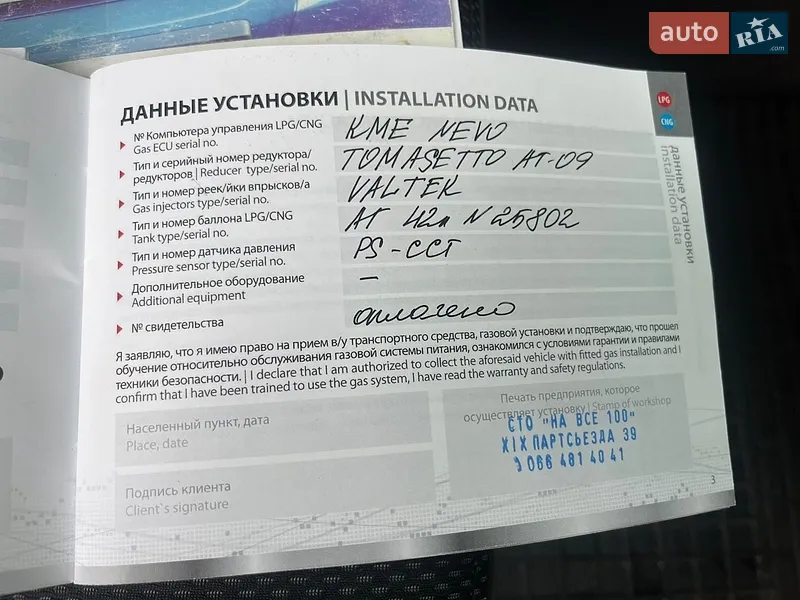 auto RIA .com
ДАННЫЕ УСТАНОВКИ | INSTALLATION DATA
LPG
CNG
данные установки
installation data
№ Компьютера управления LPG/CNG
Gas ECU serial no.
KME NEVO
Тип и серийный номер редуктора/
редукторов | Reducer type/serial no.
TOMASETTO AT-09
Тип и номер реек/йки впрысков/а
Gas injectors type/serial no.
VALTEK
Тип и номер баллона LPG/CNG
Tank type/serial no.
АГ 42л N 25802
Тип и номер датчика давления
Pressure sensor type/serial no.
PS-CCT
Дополнительное оборудование
Additional equipment
—
№ свидетельства
оплачено
Я заявляю, что я имею право на прием в/у транспортного средства, газовой установки и подтверждаю, что прошел
обучение относительно обслуживания газовой системы питания, ознакомился с условиями гарантии и правилами
техники безопасности. | I declare that I am authorized to collect the aforesaid vehicle with fitted gas installation and I
confirm that I have been trained to use the gas system, I have read the warranty and safety regulations.
Населенный пункт, дата
Place, date
Печать предприятия, которое
осуществляет установку | Stamp of workshop
СТО "НА ВСЕ 100"
XIX ПАРТСЬЕЗДА 39
066 481 40 41
Подпись клиента
Client`s signature
3